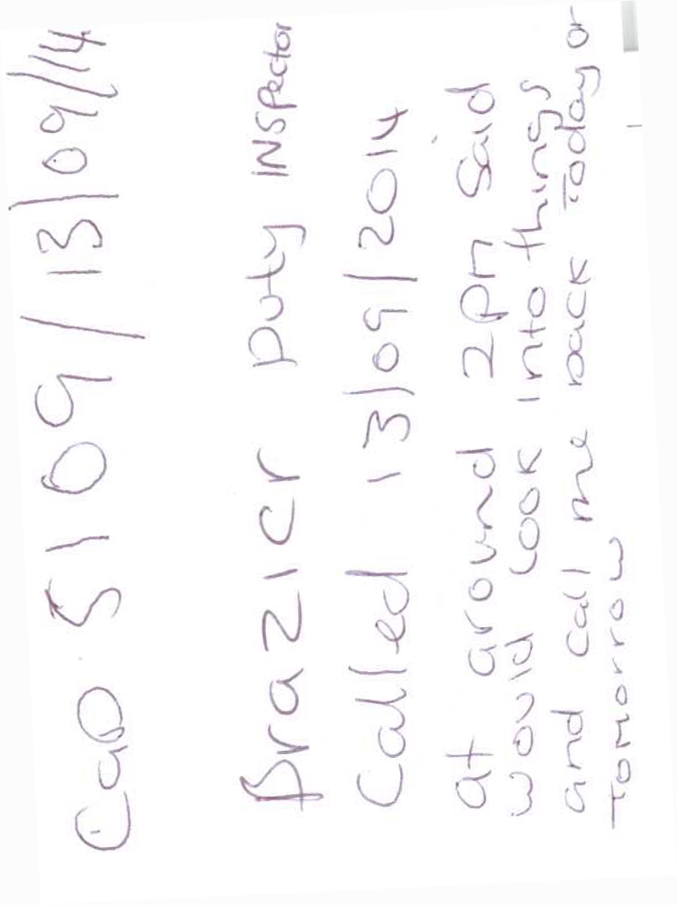 Cad 5109/13/09/14
Brazier Duty Inspector
Called 13/09/2014
at around 2pm said
would look into things
and call me back today or
Tomorrow